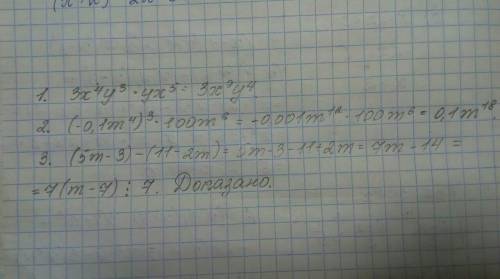 1. 3x⁴y³·yx⁵= 3x⁹y⁴
2. (-0,1m⁴)³·100m⁶ = -0,001m¹²·100m⁶ = 0,1m¹⁸.
3. (5m-3)-(11-2m)= 5m-3-11+2m= 7m-14 =
=7(m-7)⋮7. Доказано.